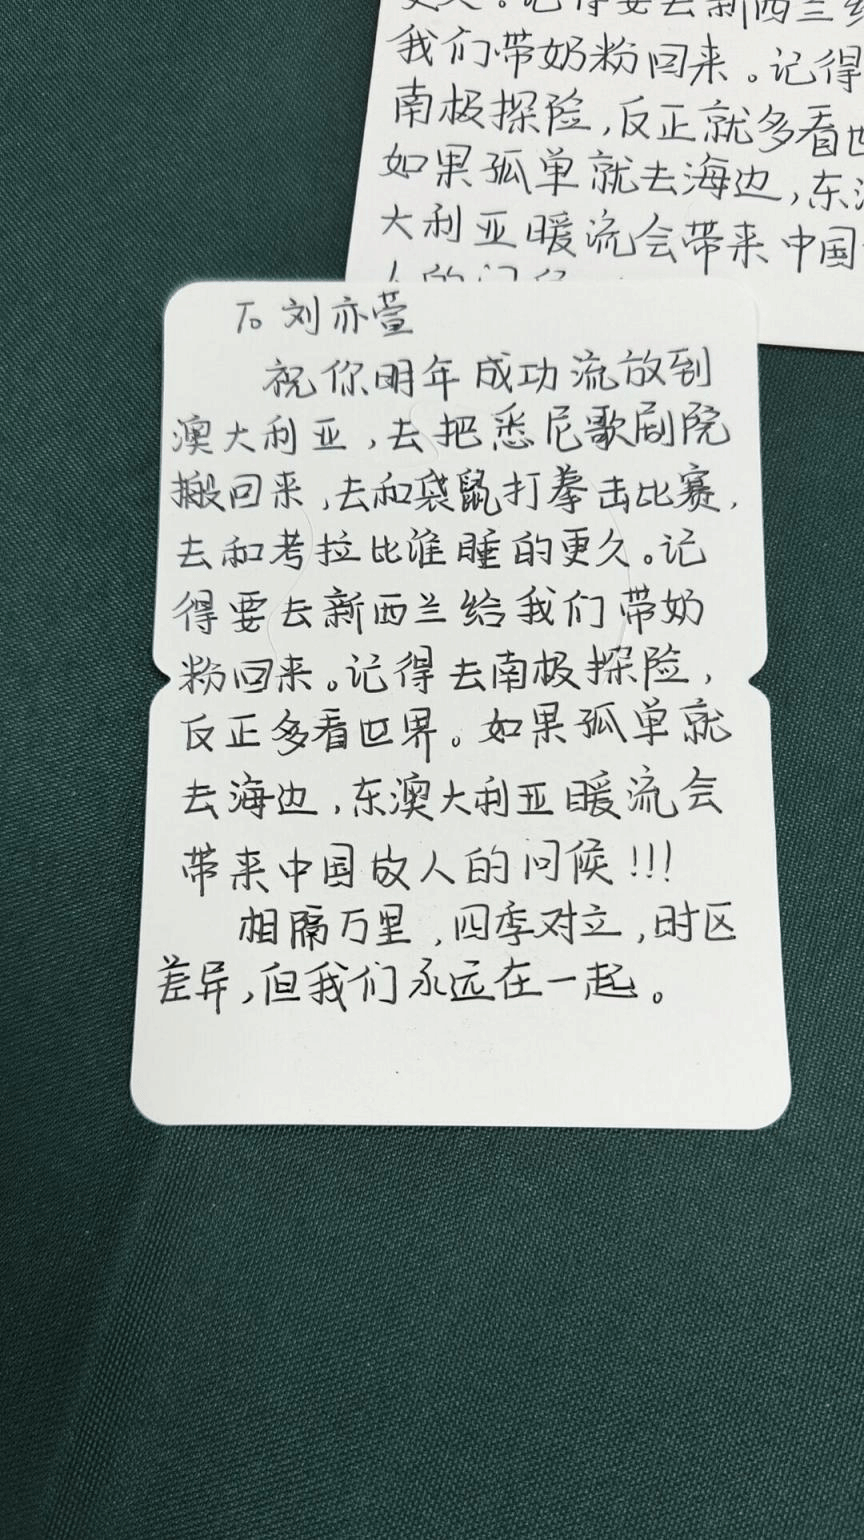 记得要去新西兰
我们带奶粉回来。记得
南极探险,反正就多看世
如果孤单就去海边,东
大利亚暖流会带来中国
To 刘亦萱
祝你明年成功流放到
澳大利亚,去把悉尼歌剧院
搬回来,去和袋鼠打拳击比赛,
去和考拉比谁睡的更久。记
得要去新西兰给我们带奶
粉回来。记得去南极探险,
反正多看世界。如果孤单就
去海边,东澳大利亚暖流会
带来中国故人的问候!!!
相隔万里,四季对立,时区
差异,但我们永远在一起。